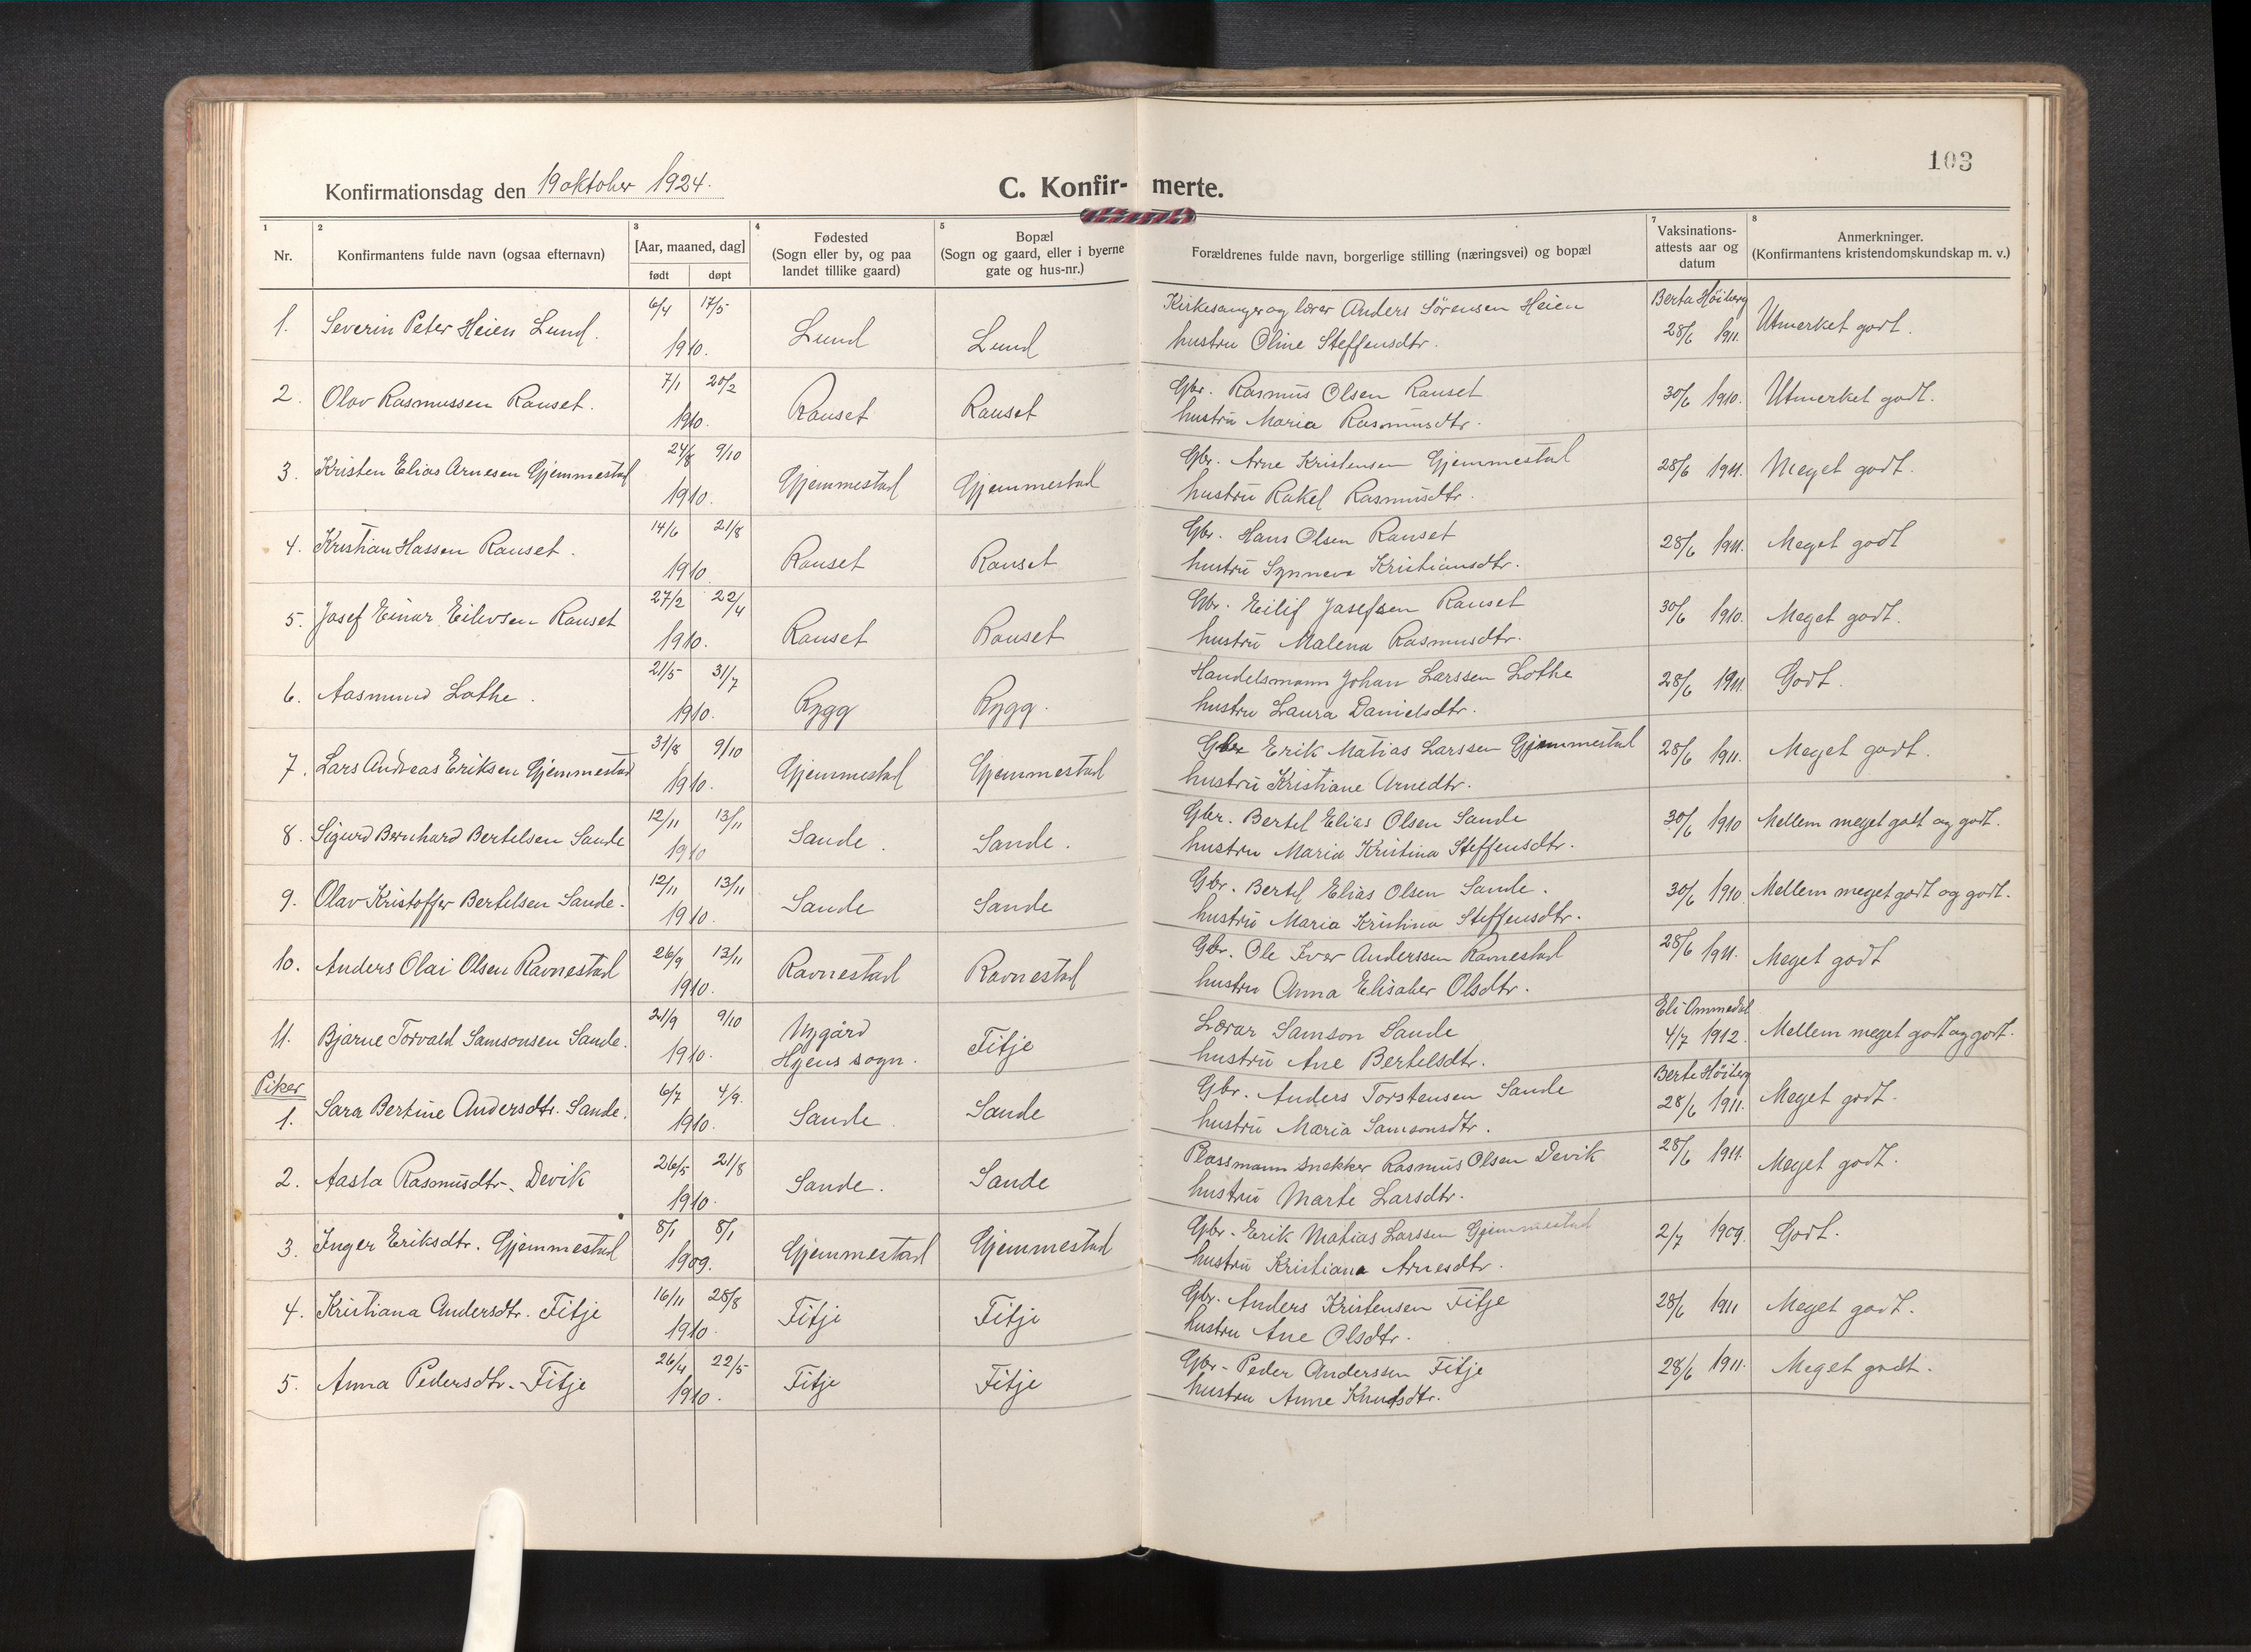 103
Konfirmationsdag den 19 oktober 1924.
C. Konfirmerte.
1 2 3 4 5 7 8
Nr. Konfirmantens fulde navn (ogsaa efternavn) [Aar, maaned, dag] født døpt Fødested (Sogn eller by, og paa landet tillike gaard) Bopæl (Sogn og gaard, eller i byerne gate og hus-nr.) Forældrenes fulde navn, borgerlige stilling (næringsvei) og bopæl Vaksinations-attests aar og datum Anmerkninger. (Konfirmantens kristendomskundskap m. v.)
1. Severin Peter Heien Lund. 6/4 17/5 1910. Lund Lund Kirkesanger og lærer Anders Sörensen Heien Berta Höiberg
hustru Oline Steffensdtr. 28/6 1911. Utmerket godt.
2. Olav Rasmussen Rauset. 7/1 20/2 1910. Rauset Rauset Gbr. Rasmus Olsen Rauset 30/6 1910. Utmerket godt.
hustrü Maria Rasmusdtr.
3. Kristen Elias Arnesen Gjemmestad 24/8 9/10 1910. Gjemmestad Gjemmestad Gbr. Arne Kristensen Gjemmestad 28/6 1911. Meget godt.
hustrü Rakel Rasmusdtr.
4. Kristian Hassen Rauset. 14/6 21/8 1910. Rauset Rauset Gbr. Hans Olsen Rauset 28/6 1911. Meget godt
hustrü Synneva Kristiansdtr.
5. Josef Einar Eilevsen Rauset 27/2 22/4 1910. Rauset Rauset Gbr. Eilif Josefsen Rauset 30/6 1910. Meget godt.
hustrü Malena Rasmusdtr.
6. Aasmund Lothe. 21/5 31/7 1910. Rygg Rygg. Handelsmann Johan Larssen Lothe 28/6 1911. Godt.
hustru Laura Danielsdtr.
7. Lars Andreas Eriksen Gjemmestad 31/8 9/10 1910. Gjemmestad Gjemmestad Gbr Erik Matias Larssen Gjemmestad 28/6 1911. Meget godt.
hustrü Kristiane Arnedtr.
8. Sigurd Bernhard Bertelsen Sande 12/11 13/11 1910 Sande. Sande. Gbr. Bertel Elias Olsen Sande 30/6 1910 Mellem meget godt og godt.
hustru Maria Kristina Steffensdtr.
9. Olav Kristoffer Bertelsen Sande. 12/11 13/11 1910. Sande Sande Gbr. Bertel Elias Olsen Sande. 30/6 1910. Mellem meget godt og godt.
hustrü Maria Kristina Steffensdtr.
10. Anders Olai Olsen Ravnestad 26/9 13/11 1910. Ravnestad Ravnestad Gbr. Ole Iver Anderssen Ravnestad 28/6 1911. Meget godt
hustru Anna Elisaber Olsdtr.
11. Bjarne Torvald Samsonsen Sande. 21/9 9/10 1910. Nygård Hyens sogn. Fitje Lærar Samson Sande Eli Ommedal
hustrü Ane Bertelsdtr. 4/7 1912. Mellem meget godt og godt.
Piker
1. Sara Bertine Andersdtr. Sande. 6/7 4/9. 1910. Sande Sande Gbr. Anders Torstensen Sande Berte Höiberg
hustrü Maria Samsonsdtr. 28/6 1911. Meget godt.
2. Aasta Rasmusdtr. Devik 26/5 21/8 1910. Sande. Sande Plassmann snekker Rasmus Olsen Devik 28/6 1911. Meget godt.
hustrü Marte Larsdtr.
3. Inger Eriksdtr. Gjemmestad 8/1 8/1 1909. Gjemmestad Gjemmestad Gbr. Erik Matias Larssen Gjemmestad 2/7 1909. Godt.
hustrü Kristiana Arnesdtr.
4. Kristiana Andersdtr. Fitje 16/11 28/8 1910. Fitje Fitje Gbr. Anders Kristensen Fitje 28/6 1911 Meget godt.
hustru Ane Olsdtr.
5. Anna Pedersdtr. Fitje 26/4 22/5 1910. Fitje Fitje Gbr. Peder Anderssen Fitje 28/6 1911. Meget godt.
hustru Anne Knutsdtr.